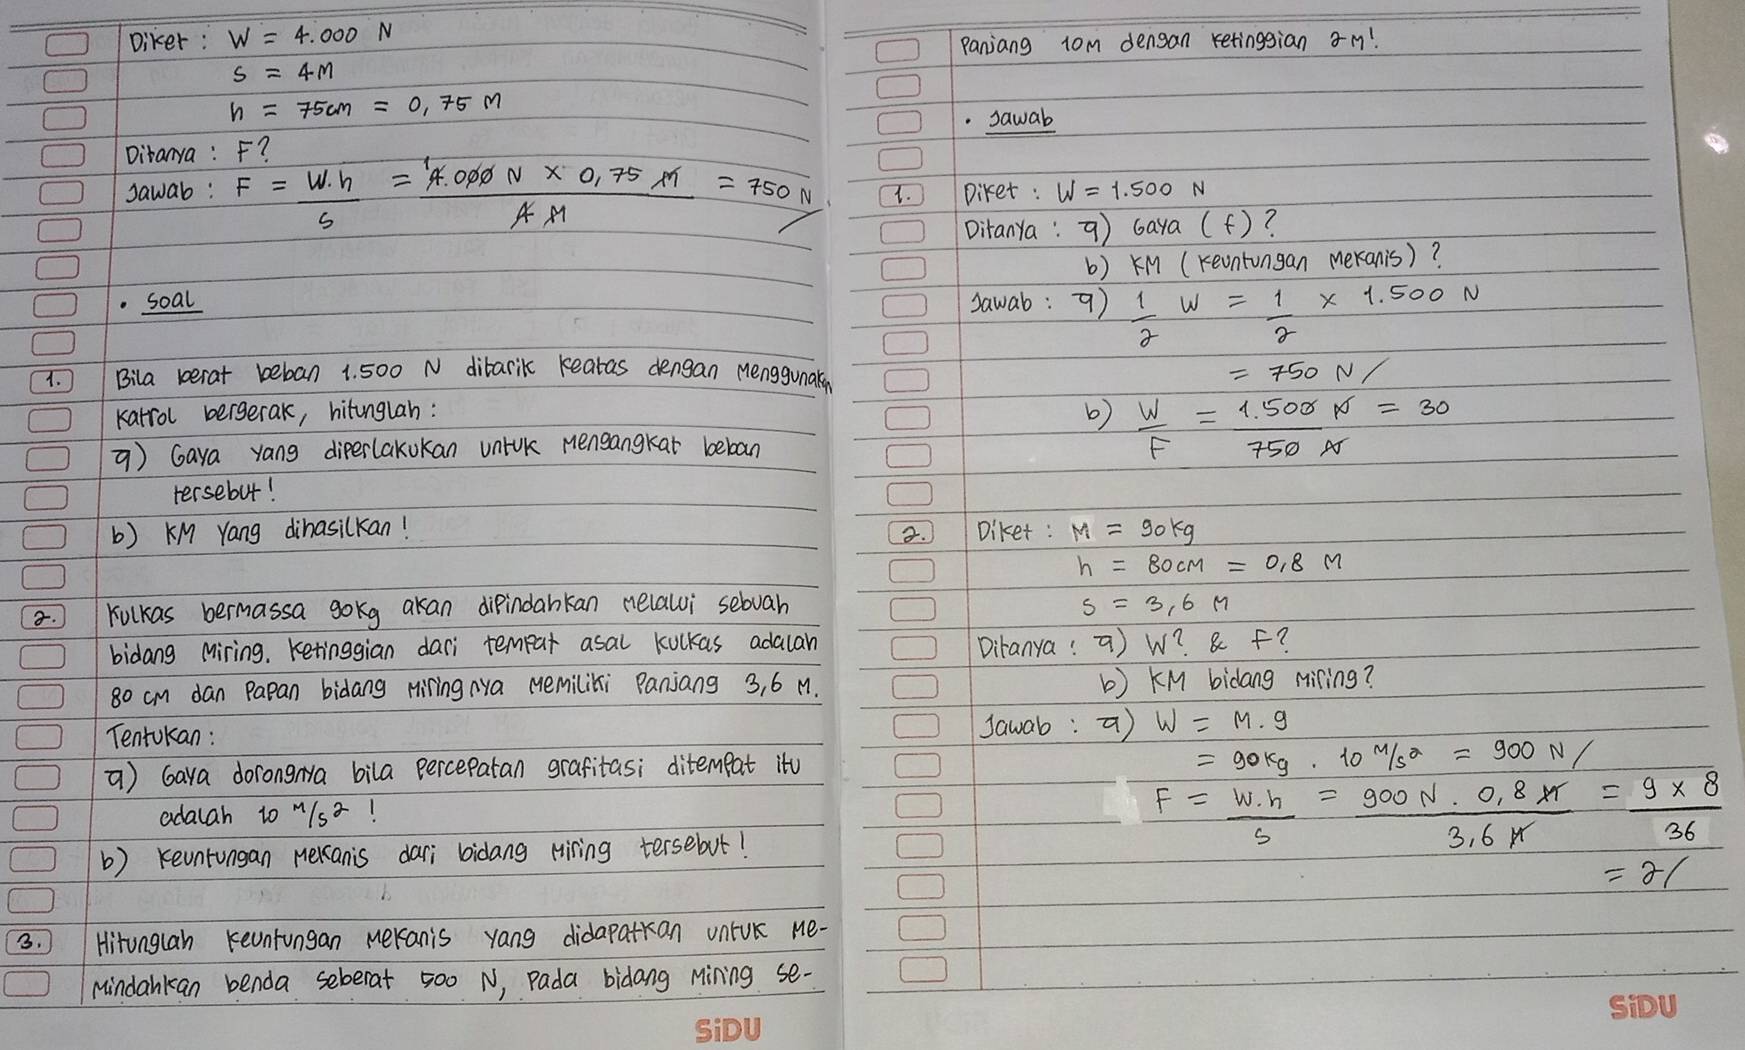 Diket : W = 4.000 N
s = 4M
h = 75cm = 0,75 M
Ditanya : F?
Jawab : F = W.h / s = 4.000 N × 0,75 M / 4 M = 750 N
• Soal
1. Bila berat beban 1.500 N ditarik keatas dengan Menggunakan
Katrol bergerak, hitunglah :
a) Gaya yang diperlakukan untuk Mengangkat beban
tersebut!
b) KM yang dihasilkan!
2. Kulkas bermassa 90kg akan dipindahkan Melalui sebuah
bidang Miring. Ketinggian dari tempat asal kulkas adalah
80 cm dan Papan bidang Miringnya Memiliki Panjang 3,6 M.
Tentukan :
a) Gaya dorongnya bila Percepatan grafitasi ditempat itu
adalah 10 M/s2 !
b) Keuntungan Mekanis dari bidang Miring tersebut!
3. Hitunglah Keuntungan Mekanis yang didapatkan untuk Me-
Mindahkan benda seberat 500 N, Pada bidang Miring se-
SiDU
Panjang 10M dengan ketinggian 2M!
• Jawab
1. Diket : W = 1.500 N
Ditanya : a) Gaya (f)?
b) KM (Keuntungan Mekanis)?
Jawab : a) 1/2 W = 1/2 × 1.500 N
= 750 N/
b) W/F = 1.500 N / 750 N = 30
2. Diket : M = 90kg
h = 80cM = 0,8 M
s = 3,6 M
Ditanya : a) W? & F?
b) KM bidang Miring?
Jawab : a) W = M.g
= 90kg . 10 M/s2 = 900 N/
F = W.h / s = 900 N . 0,8 M / 3,6 M = 9 × 8 / 36
= 2/
SiDU